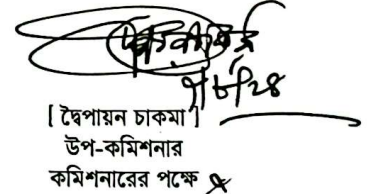 ৭/৮/২৪
[ দ্বৈপায়ন চাকমা ]
উপ-কমিশনার
কমিশনারের পক্ষে